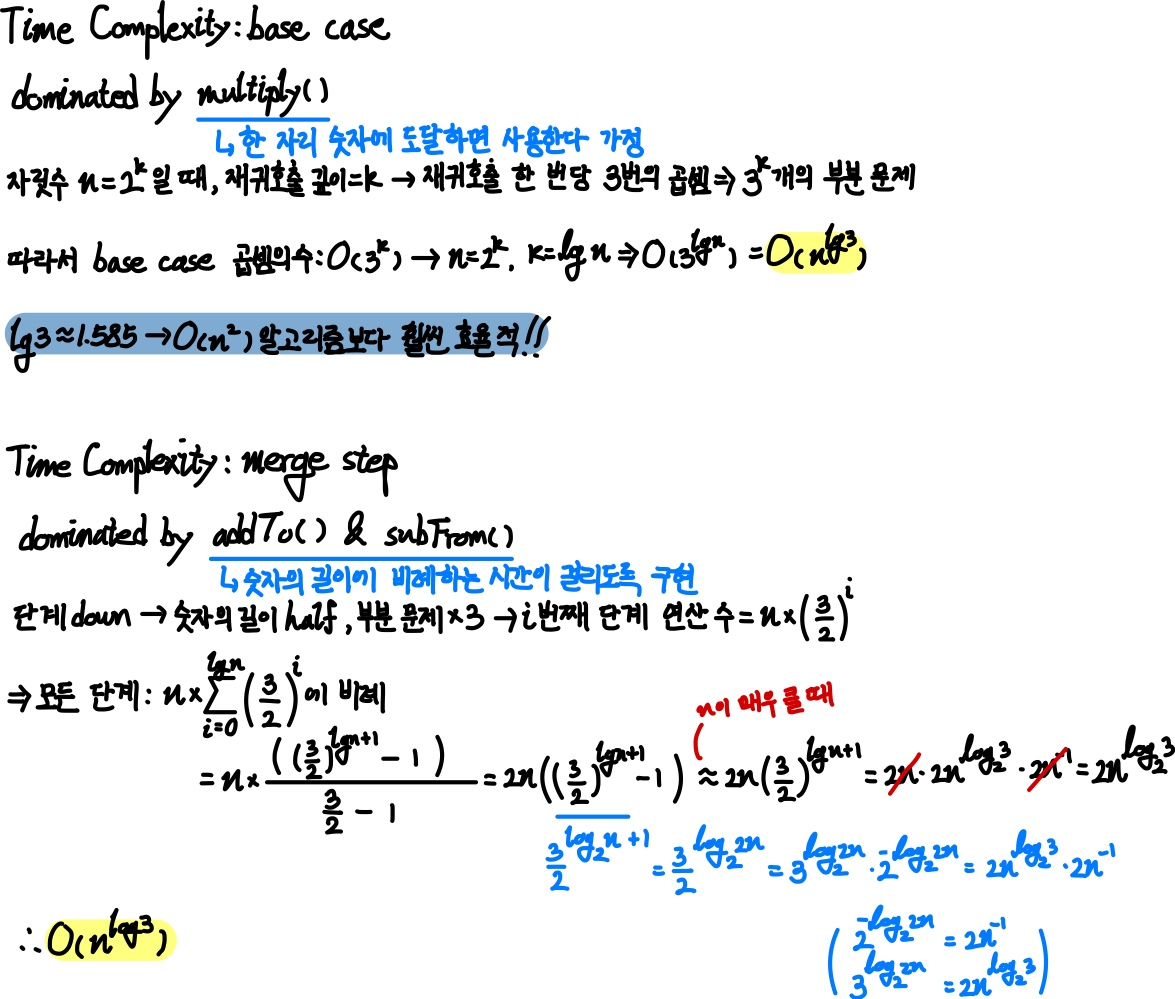 Time Complexity: base case
dominated by multiply()
↳ 한 자리 숫자에 도달하면 사용한다 가정
자릿수 n=2^k 일 때, 재귀호출 깊이=k → 재귀호출 한 번당 3번의 곱셈 ⇒ 3^k개의 부분 문제
따라서 base case 곱셈의수: O(3^k) → n=2^k, k=lg n ⇒ O(3^{lg n}) = O(n^{lg3})
lg3≈1.585 → O(n²) 알고리즘보다 훨씬 효율적!!
Time Complexity: merge step
dominated by addTo() & subFrom()
↳ 숫자의 길이에 비례하는 시간이 걸리도록 구현
단계 down → 숫자의 길이 half, 부분 문제×3 → i번째 단계 연산 수 = n×(3/2)^i
⇒ 모든 단계: n×∑_{i=0}^{lg n} (3/2)^i 에 비례
n이 매우 클 때
= n× ((3/2)^{lg n+1} - 1) / (3/2 - 1) = 2n((3/2)^{lg n+1} - 1) ≈ 2n(3/2)^{lg n+1} = 2n·2n^{log_2 3}·2n^{-1} = 2n^{log_2 3}
3/2^{log_2 n+1} = 3/2^{log_2 2n} = 3^{log_2 2n}·2^{-log_2 2n} = 2n^{log_2 3}·2n^{-1}
(2^{-log_2 2n} = 2n^{-1}
3^{log_2 2n} = 2n^{log_2 3})
∴ O(n^{log3})